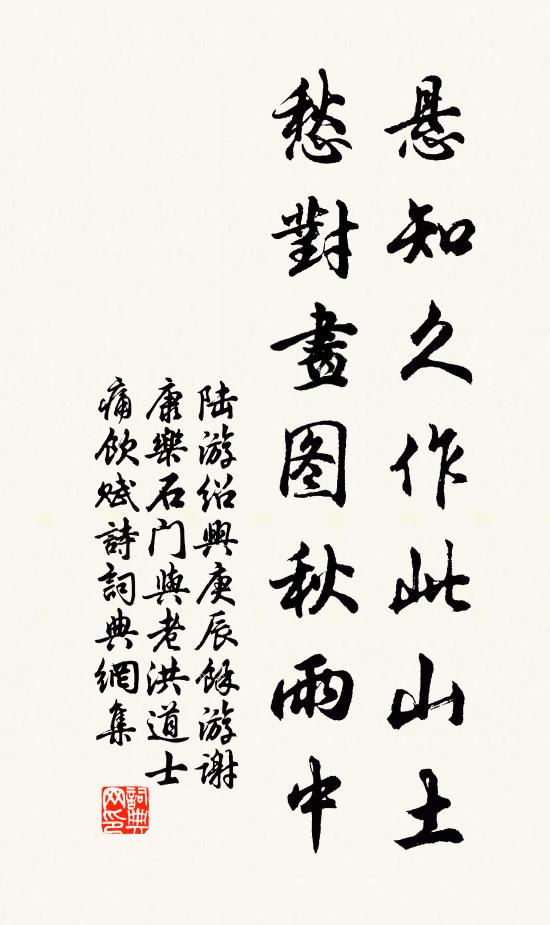 悬知久作此山土
愁對畫图秋雨中
陆游绍興庚辰餘游謝
康樂石门與老洪道士
痛飲赋詩詞典網集
詞典
网印